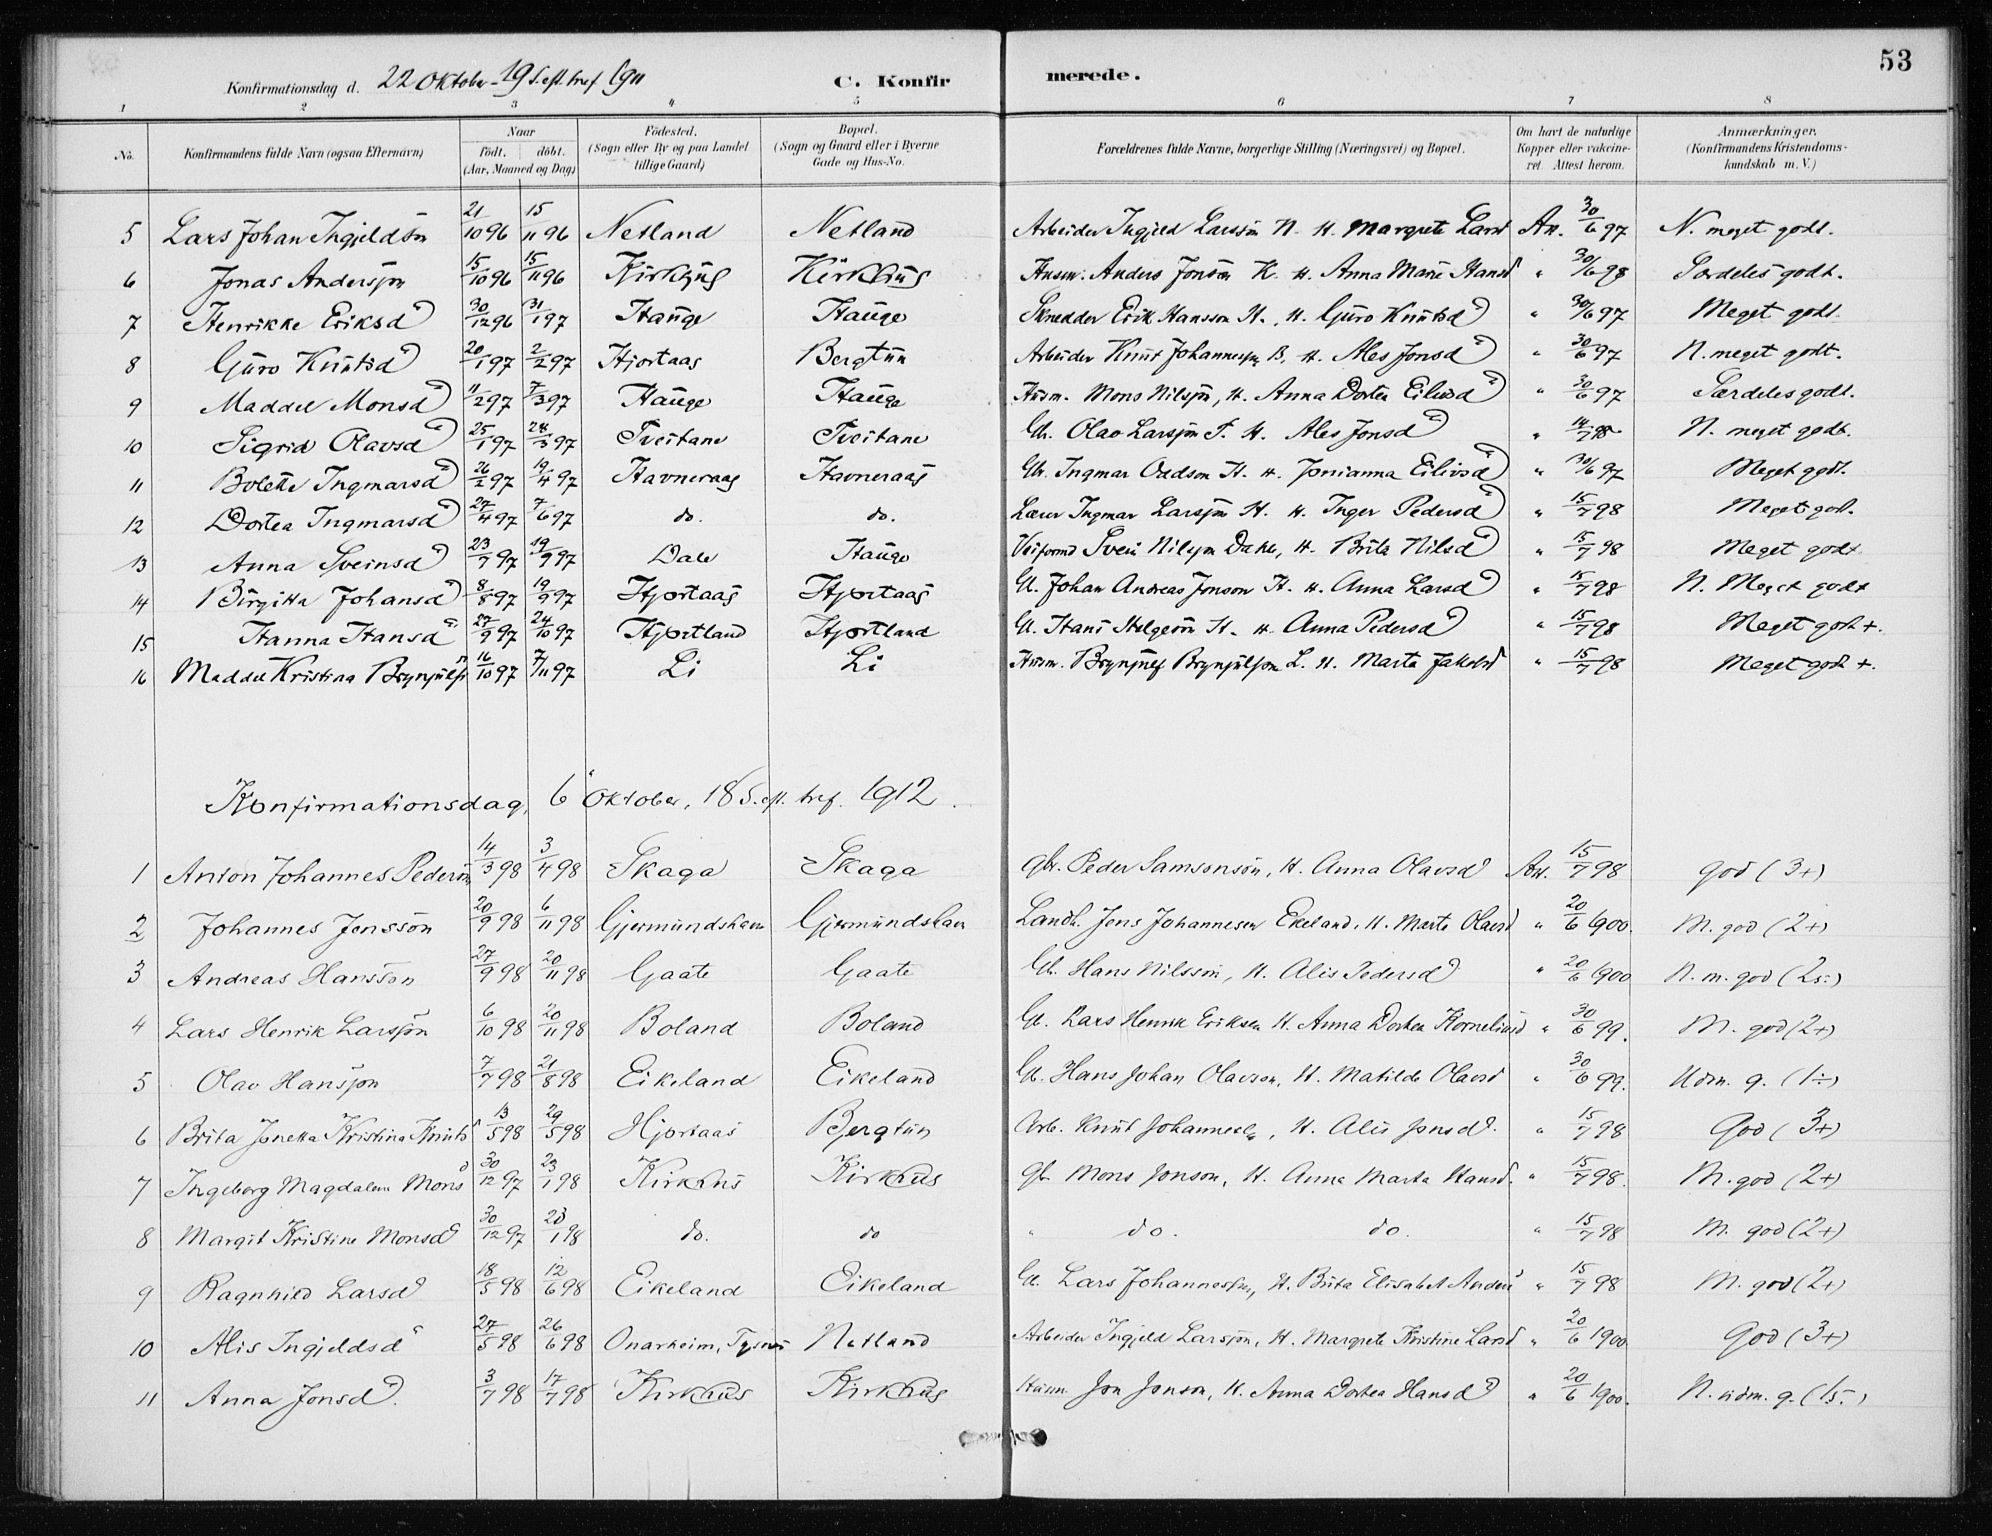 53
Konfirmationsdag d. 22 Oktober - 19 S. eft. tref. 1911 C. Konfirmerede.
1 2 3 4 5 6 7 8
No. Konfirmandens fulde Navn (ogsaa Efternavn) Naar Födt. döbt. (Aar, Maaned og Dag) Födested. (Sogn eller By og paa Landet tillige Gaard) Bopæl. (Sogn og Gaard eller i Byerne Gade og Hus-No. Forældrenes fulde Navne, borgerlige Stilling (Næringsvei) og Bopæl. Om havt de naturlige Kopper eller vaccineret. Attest herom. Anmærkninger. (Konfirmandens Kristendomskundskab m. V.)
5 Lars Johan Ingjeldsön 21/10 96 15/11 96 Netland Netland Arbeider Ingjeld Larssön N. H. Margrete Larsd An. 30/6 97 N. meget godt.
6 Jonas Andersson 15/10 96 15/11 96 Kirkhus Kirkhus Husm. Anders Jonsön K. H. Anna Marie Hansd " 30/6 98 Særdeles godt.
7 Henrikke Eriksd 30/12 96 31/1 97 Hauge Hauge Skredder Erik Hansson H., H. Guro Knutsd " 30/6 97 Meget godt.
8 Guro Knutsd 20/1 97 2/2 97 Hjortaas Bergtun Arbeider Knut Johannessön B, H. Ales Jonsd " 30/6 97 N. meget godt.
9 Maddel Monsd 11/2 97 7/3 97 Hauge Hauge Husm. Mons Nilsson, H. Anna Dortea Eilivsd " 30/6 97 Særdeles godt.
10 Sigrid Olavsd 25/1 97 28/3 97 Tveitane Tveitane Gbr. Olav Larsson T. H. Ales Jonsd " 14/7 98 N. meget godt.
11 Bolette Ingmarsd 26/2 97 19/4 97 Havneraas Havneraas Gbr. Ingmar Oddson H. H. Jonianna Eilivsd " 30/6 97 Meget godt.
12 Dortea Ingmarsd 27/4 97 7/6 97 do. do. Lærer Ingmar Larssön H. H. Inger Pedersd " 15/7 98 Meget godt.
13 Anna Sveinsd 23/7 97 19/9 97 Dale Hauge Veiformd Svein Nilsson Dahle, H. Brita Nilsd " 15/7 98 Meget godt
14 Birgitta Johansd 8/8 97 19/9 97 Hjortaas Hjortaas G. Johan Andreas Jonson H. H. Anna Larsd " 15/7 98 N. Meget godt
15 Hanna Hansd 27/9 97 24/10 97 Hjortland Hjortland G. Hans Helgeson H. H. Anna Pedersd " 15/7 98 Meget godt +.
16 Maddel Kristina Brynjulfsd 16/10 97 7/11 97 Li Li Husm. Brynjulf Brynjulfson L. H. Marta Jakobsd " 15/7 98 Meget godt +.
Konfirmationsdag, 6 Oktober, 18 S. eft. tref. 1912.
1 Anton Johannes Pedersön 14/3 98 3/4 98 Skaga Skaga Gbr. Peder Samsonsön, H. Anna Olavsd An. 15/7 98 god (3+)
2 Johannes Jenssön 20/9 98 6/11 98 Gjermundshavn Gjermundshavn Landh. Jens Johannesen Ekeland, H. Marta Olavsd " 20/6 1900. M. god (2+)
3 Andreas Hansson 27/9 98 20/11 98 Gaate Gaate Gb. Hans Nilssön, H. Alis Pedersd " 20/6 1900 N. m. god (2÷)
4 Lars Henrik Larsson 6/10 98 20/11 98 Boland Boland G. Lars Henrik Eriksen H. Anna Dortea Korneliusd " 30/6 99. M. god (2+)
5 Olav Hansson 7/7 98 21/8 98 Eikeland Eikeland G. Hans Johan Olavson, H. Matilde Olavsd " 30/6 99. Udm. g. (1÷)
6 Brita Jonetta Kristina Knutsd 13/5 98 29/5 98 Hjortaas Bjergtun Arb. Knut Johanness., H. Alis Jonsd. " 15/7 98 God (3+)
7 Ingeborg Magdalena Monsd 30/12 97 23/1 98 Kirkhus Kirkhus Gb. Mons Jonson, H. Anna Marta Hansd. " 15/7 98. M. god (2+)
8 Margit Kristine Monsd 30/12 97 23/1 98 do. do " do. do. " 15/7 98 M. god (2+)
9 Ragnhild Larsd 18/5 98 12/6 98 Eikeland Eikeland G. Lars Johannessön, H. Brita Elisabet Andersd " 15/7 98 M. god (2+)
10 Alis Ingjeldsd 27/5 98 26/6 98 Onarheim, Tysnes Netland Arbeider Ingjeld Larssön, H. Margrete Kristine Larsd " 20/6 1900 God (3+)
11 Anna Jonsd. 3/7 98 17/7 98 Kirkhus Kirkhus Husm. Jon Jonson, H. Anna Dortea Hansd " 20/6 1900. N. udm. g. (1÷)